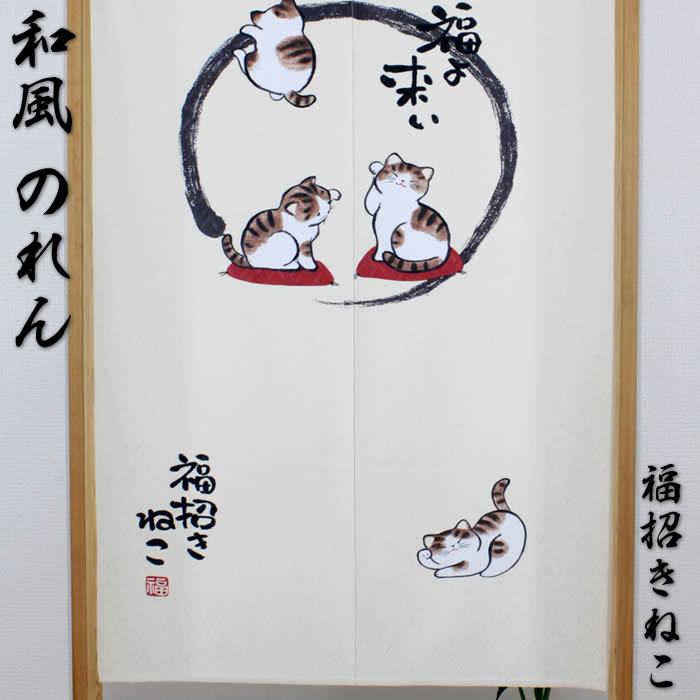 和風 のれん
福よ
来い
福招き
ねこ
福
福招きねこ